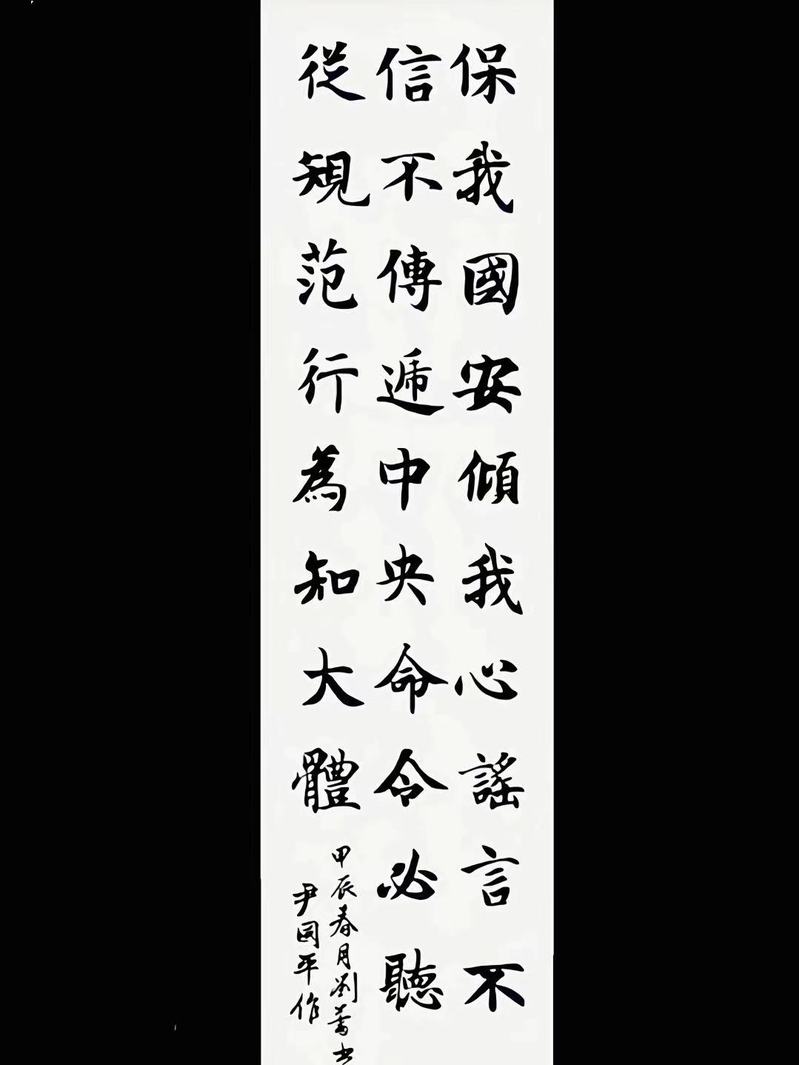 保我國安傾我心謠言不
信不傳遞中央命令必聽
從規范行為知大體
甲辰春月劉菁书
尹国平作